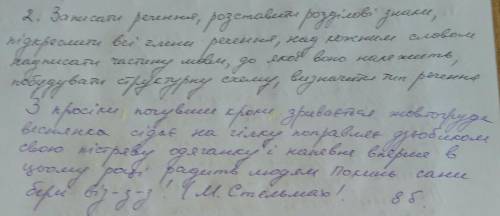 2. Записати речення, розставити розділові знаки,
підкреслити всі члени речення, над кожним словом
надписати частину мови, до якої воно належить,
побудувати структурну схему, визначити тип речення
З просіки почувши кроки зривається жовтогруда
веснянка сідає на гілку поправляє дзьобиком
свою пістряву одяганку і напевне вперше в
цьому році радить людям Покинь сани
бери віз-з-з! (М. Стельмах). 8б.